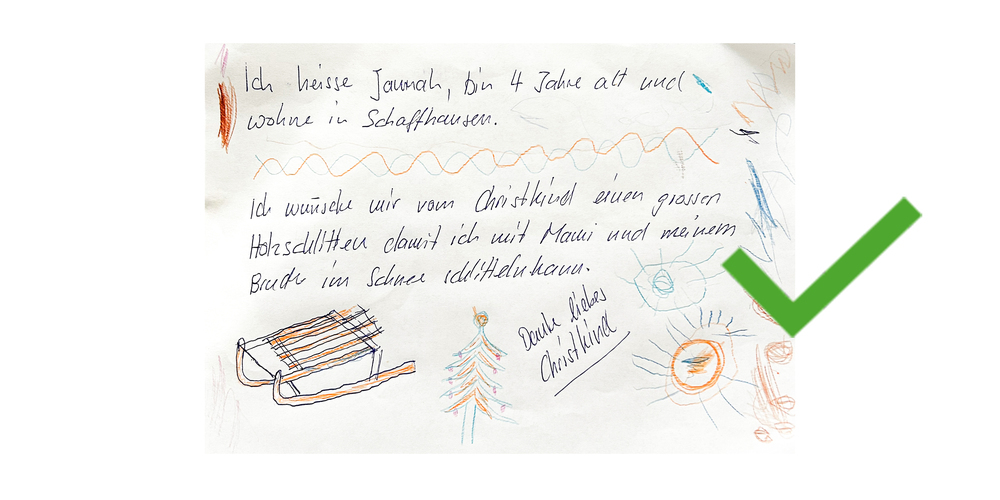 Ich heisse Jannah, bin 4 Jahre alt und
wohne in Schaffhausen.
Ich wünsche mir vom Christkind einen grossen
Holzschlitten damit ich mit Mami und meinem
Bruder im Schnee schlitteln kann.
Danke liebes
Christkind